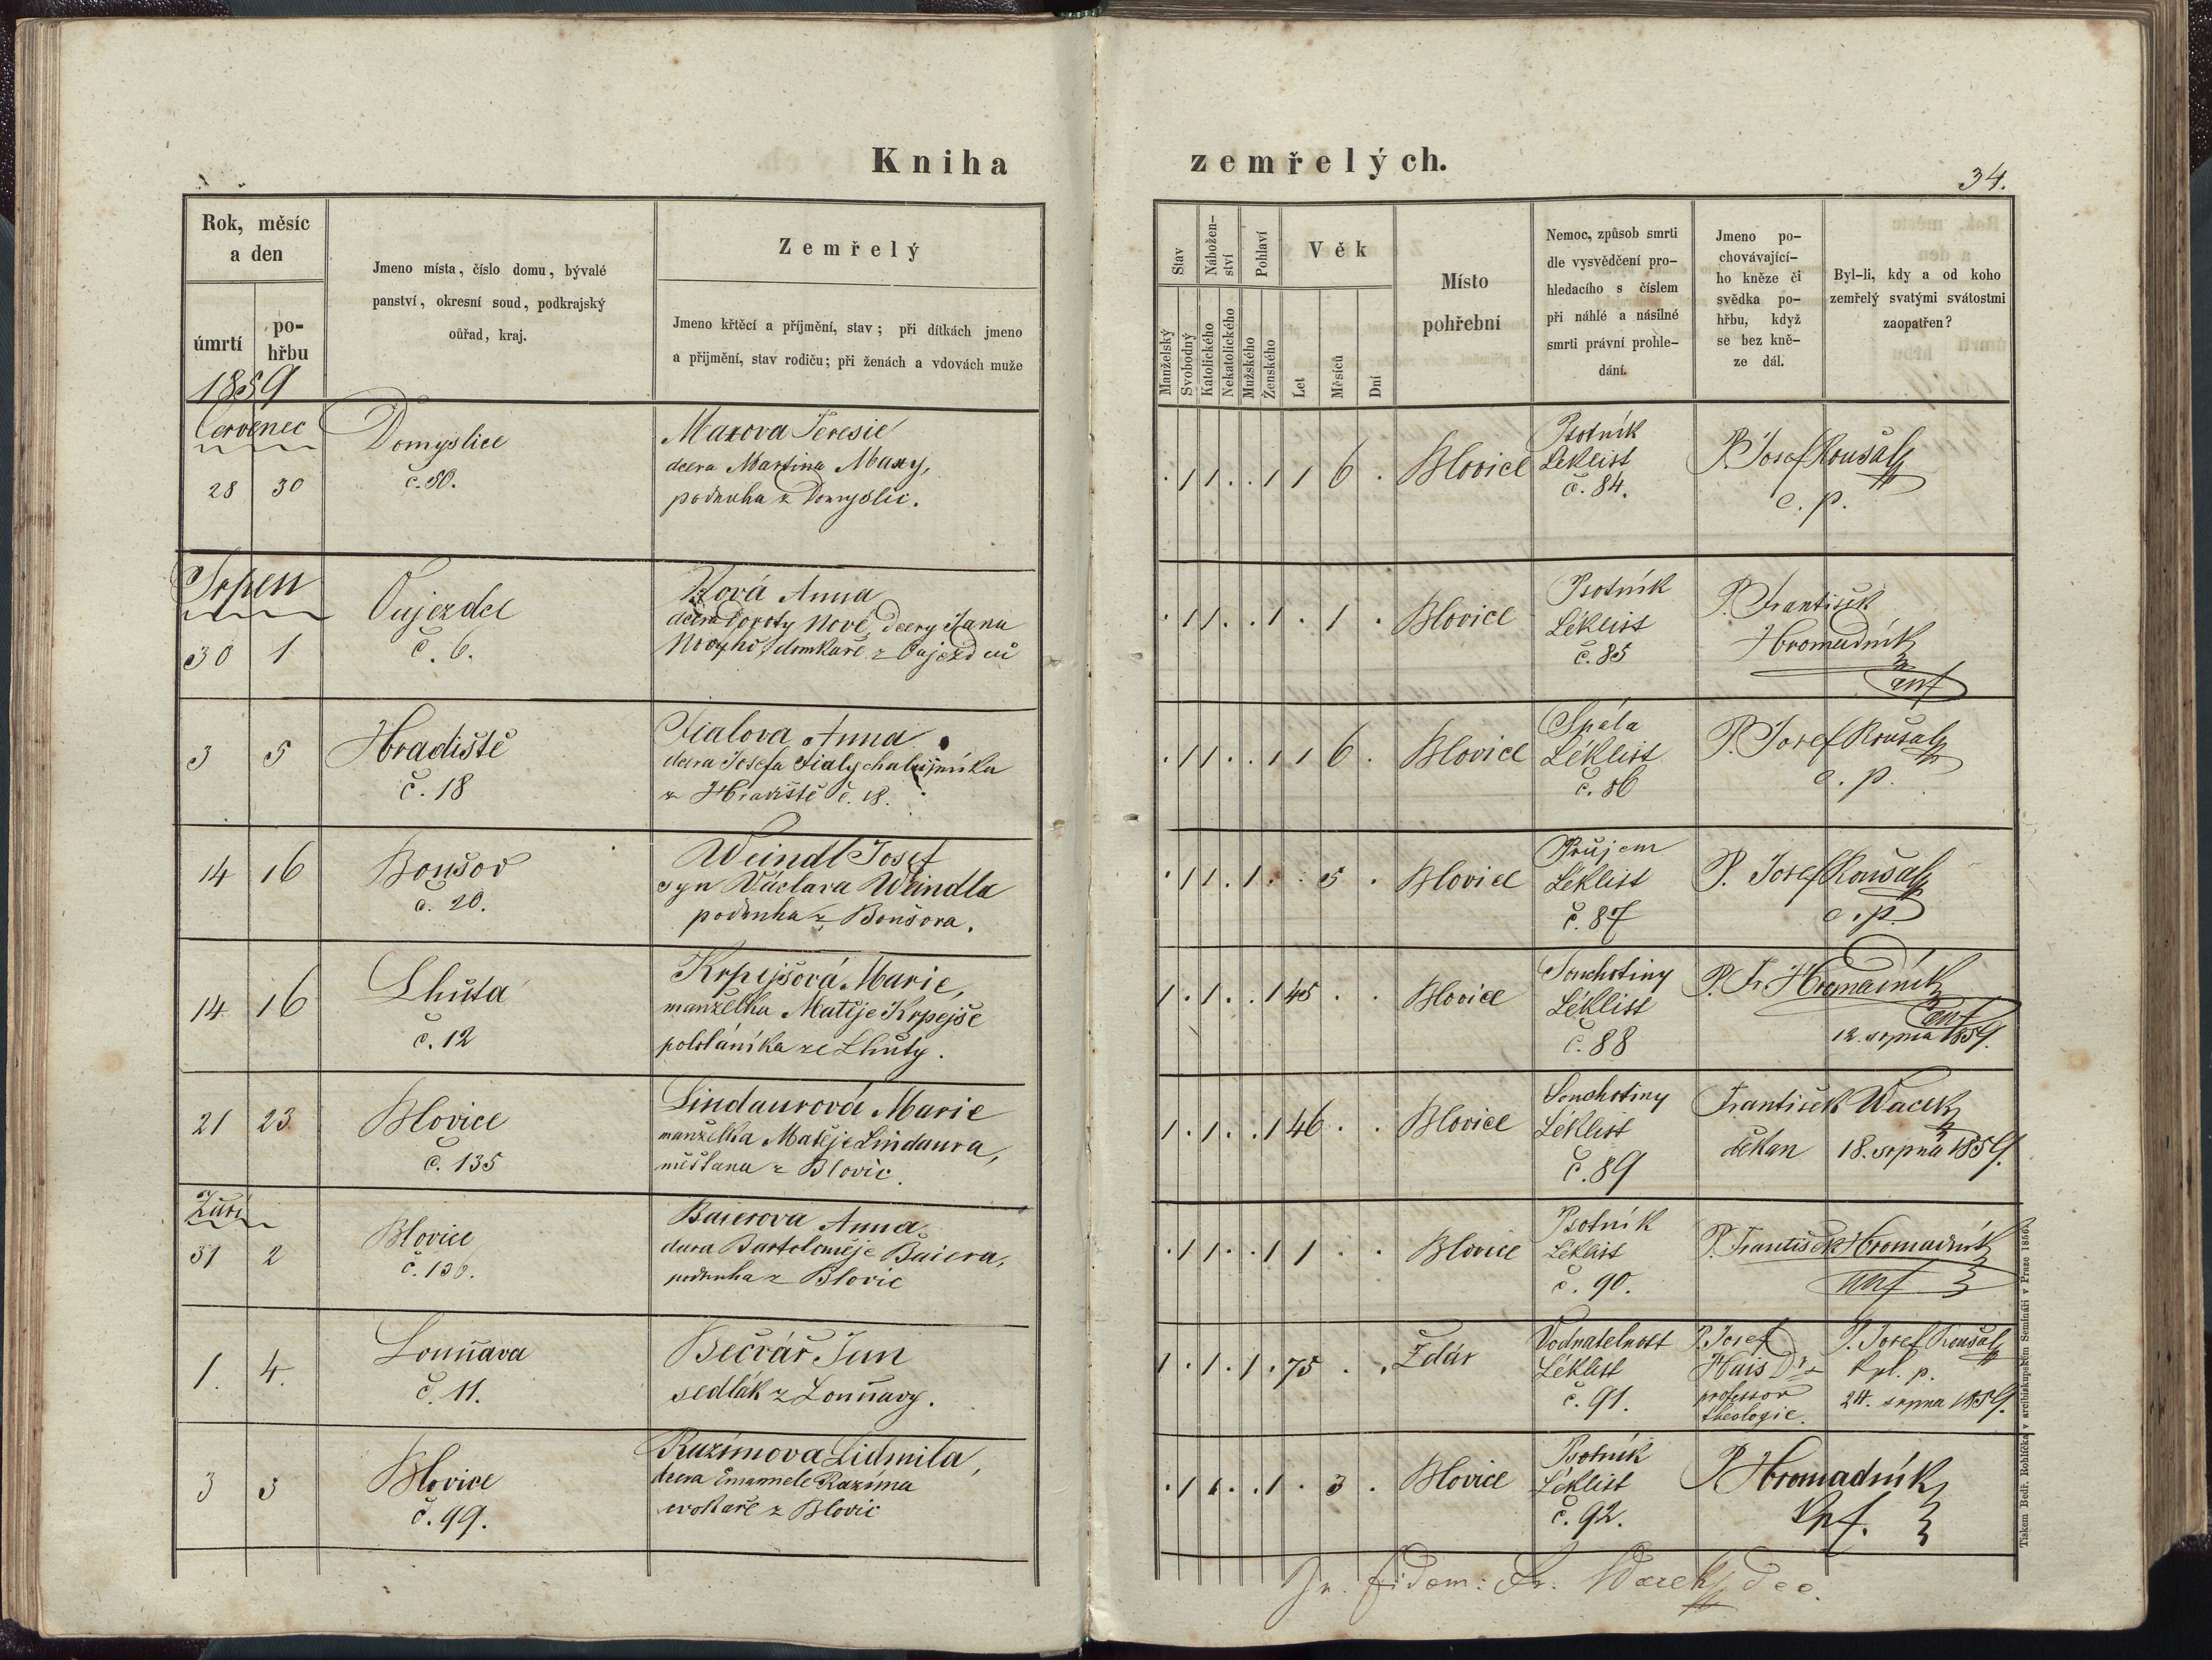 Kniha
zemřelých.
34.
Rok, měsíc
a den
úmrtí
po-
hřbu
Jmeno místa, číslo domu, bývalé
panství, okresní soud, podkrajský
oůřad, kraj.
Zemřelý
Jmeno křtěcí a příjmění, stav; při dítkách jmeno
a přijmění, stav rodičů; při ženách a vdovách muže
Stav
Nábožen-
ství
Pohlaví
Věk
Manželský
Svobodný
Katolického
Nekatolického
Mužského
Ženského
Let
Měsíců
Dní
Místo
pohřební
Nemoc, způsob smrti
dle vysvědčení pro-
hledacího s číslem
při náhlé a násilné
smrti právní prohle-
dání.
Jmeno po-
chovávající-
ho kněze či
svědka po-
hřbu, když
se bez kně-
ze dál.
Byl-li, kdy a od koho
zemřelý svatými svátostmi
zaopatřen?
1859
Červenec
28 30
Domyslice
č. 50.
Maxova Teresie
dcera Martina Maxy,
podruha z Domyslic.
. 1 1 . . 1 1 6 .
Blovice
Psotník
Léklist
č. 84.
P. Josef Roušal
c. p.
Srpen
30 1
Oujezdec
č. 6.
Nová Anna
dcera Doroty Nové, dcery Jana
Nového, domkaře z Oujezdců
. 1 1 . . 1 . 1 .
Blovice
Psotník
Léklist
č. 85
P. František
Hromadník
3 5
Hradiště
č. 18
Fialova Anna
dcera Josefa Fialy chalupníka
z Hradiště č. 18.
. 1 1 . . 1 1 6 .
Blovice
Spála
Léklist
č. 86
P. Josef Roušal
c. p.
14 16
Boušov
č. 20.
Weindl Josef
syn Václava Weindla
podruha z Boušova.
. 1 1 . 1 . . 5 .
Blovice
Průjem
Léklist
č. 87
P. Josef Roušal
c. p.
14 16
Lhůta
č. 12
Krpejšová Marie,
manželka Matěje Krpejše
pololáníka ze Lhůty.
1 . 1 . . 1 45 . .
Blovice
Souchotiny
Léklist
č. 88
P. Fr Hromadník
12. srpna 1859.
21 23
Blovice
č. 135
Lindaurová Marie
manželka Matěje Lindaura,
měšťana z Blovic.
1 . 1 . . 1 46 . .
Blovice
Souchotiny
Léklist
č. 89
František Wacek
děkan 18. srpna 1859.
Září
31 2
Blovice
č. 130.
Baierova Anna
dcera Bartoloměje Baiera,
podruha z Blovic
. 1 1 . . 1 1 . .
Blovice
Psotník
Léklist
č. 90.
P. František Hromadník
1. 4.
Louňava
č. 11.
Bečvář Jan
sedlák z Louňavy.
1 . 1 . 1 . 75 . .
Ždár
Vodnatelnost
Léklist
č. 91.
P. Josef
Hais Dr
professor
theologie.
P. Josef Roušal
kpl. p.
24. srpna 1859.
3 3
Blovice
č. 99.
Razímova Lidmila,
dcera Emanuele Razíma
z Blovic
. 1 1 . . 1 . 3 .
Blovice
Psotník
Léklist
č. 92.
P. Hromadník
In fidem: Fr. Wacek dec.
Tiskem Bedř. Rohlíčka v arcibiskupském Semináři v Praze 1856.